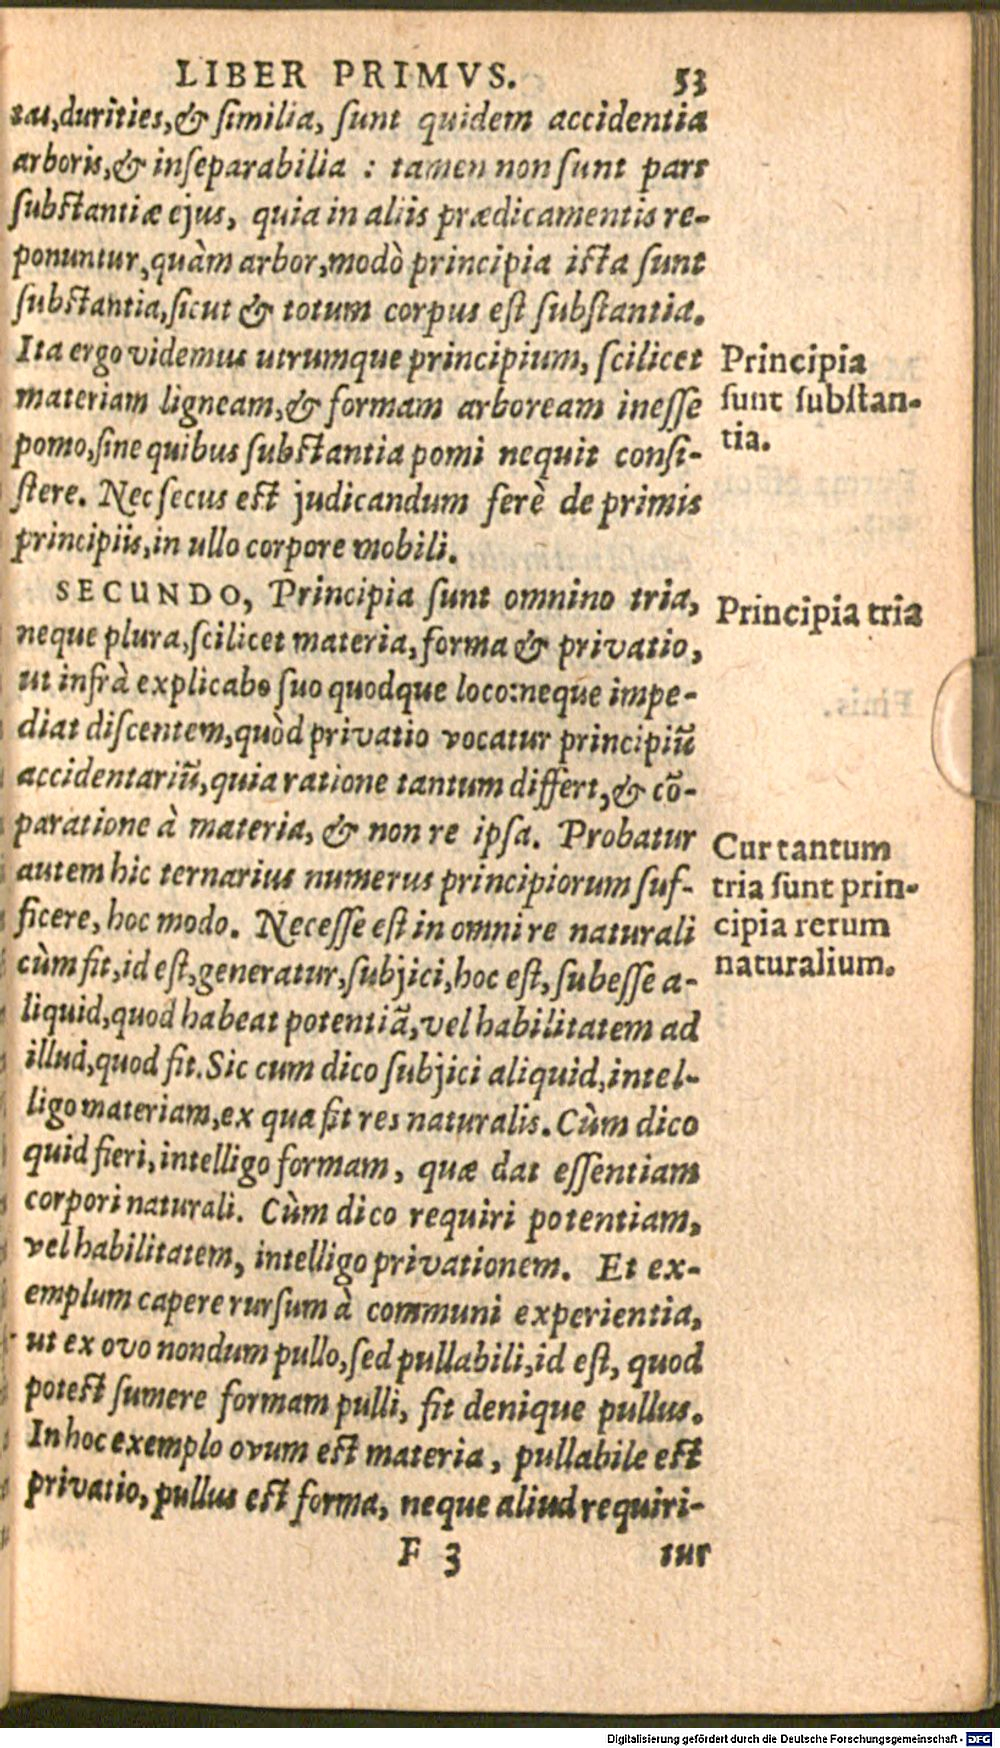 LIBER PRIMVS. 53
tas, durities, & similia, sunt quidem accidentia
arboris, & inseparabilia : tamen non sunt pars
substantiæ ejus, quia in aliis prædicamentis re-
ponuntur, quàm arbor, modò principia ista sunt
substantia, sicut & totum corpus est substantia.
Ita ergo videmus utrumque principium, scilicet
materiam ligneam, & formam arboream inesse
pomo, sine quibus substantia pomi nequit consi-
stere. Nec secus est judicandum ferè de primis
principiis, in ullo corpore mobili.
Principia
sunt substan-
tia.
SECUNDO, Principia sunt omnino tria,
neque plura, scilicet materia, forma & privatio,
ut infrà explicabo suo quodque loco: neque impe-
diat discentem, quòd privatio vocatur principiũ
accidentariũ, quia ratione tantum differt, & cõ-
paratione à materia, & non re ipsa. Probatur
autem hic ternarius numerus principiorum suf-
ficere, hoc modo. Necesse est in omni re naturali
cùm fit, id est, generatur, subjici, hoc est, subesse a-
liquid, quod habeat potentiã, vel habilitatem ad
illud, quod fit. Sic cum dico subjici aliquid, intel-
ligo materiam, ex qua fit res naturalis. Cùm dico
quid fieri, intelligo formam, quæ dat essentiam
corpori naturali. Cùm dico requiri potentiam,
vel habilitatem, intelligo privationem. Et ex-
emplum capere rursum à communi experientia,
ut ex ovo nondum pullo, sed pullabili, id est, quod
potest sumere formam pulli, fit denique pullus.
In hoc exemplo ovum est materia, pullabile est
privatio, pullus est forma, neque aliud requiri-
Principia tria
Cur tantum
tria sunt prin-
cipia rerum
naturalium.
F 3 tur
Digitalisierung gefördert durch die Deutsche Forschungsgemeinschaft - DFG